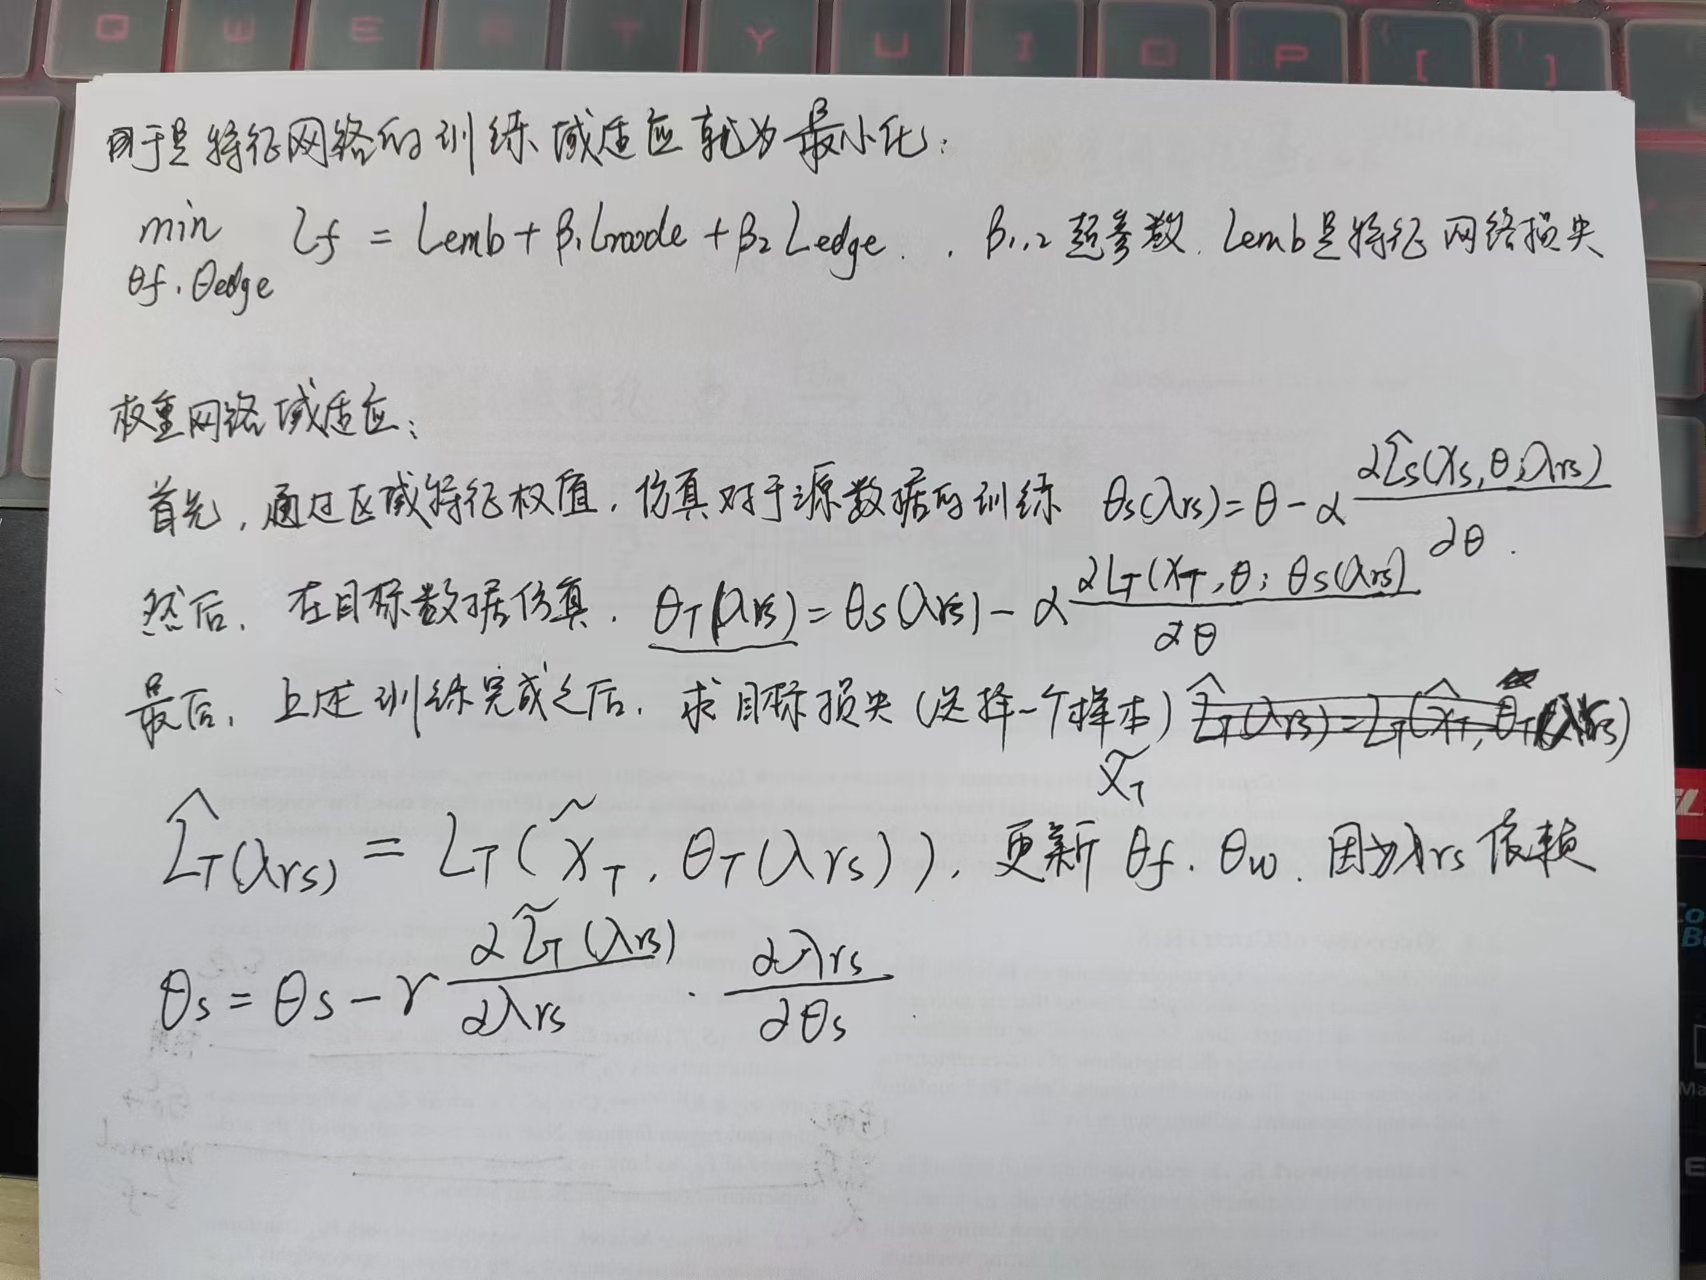 Q W E R T Y U I O P [ ]
于是特征网络的训练域适应就为最小化:
min Lf = Lemb + β₁Lnode + β₂Ledge . , β₁,₂超参数. Lemb是特征网络损失
θf, θedge
权重网络域适应:
首先, 通过区域特征权值, 仿真对于源数据的训练 θs(λrs) = θ - α ∂L̂s(Xs, θ; λrs) / ∂θ .
然后, 在目标数据仿真. θT(λrs) = θs(λrs) - α ∂LT(XT, θ; θs(λrs)) / ∂θ
最后, 上述训练完成之后, 求目标损失(选择一个样本)
X̃T
L̂T(λrs) = LT(X̃T, θT(λrs)), 更新 θf, θw. 因为λrs依赖
θs = θs - γ ∂L̃T(λrs) / ∂λrs · ∂λrs / ∂θs